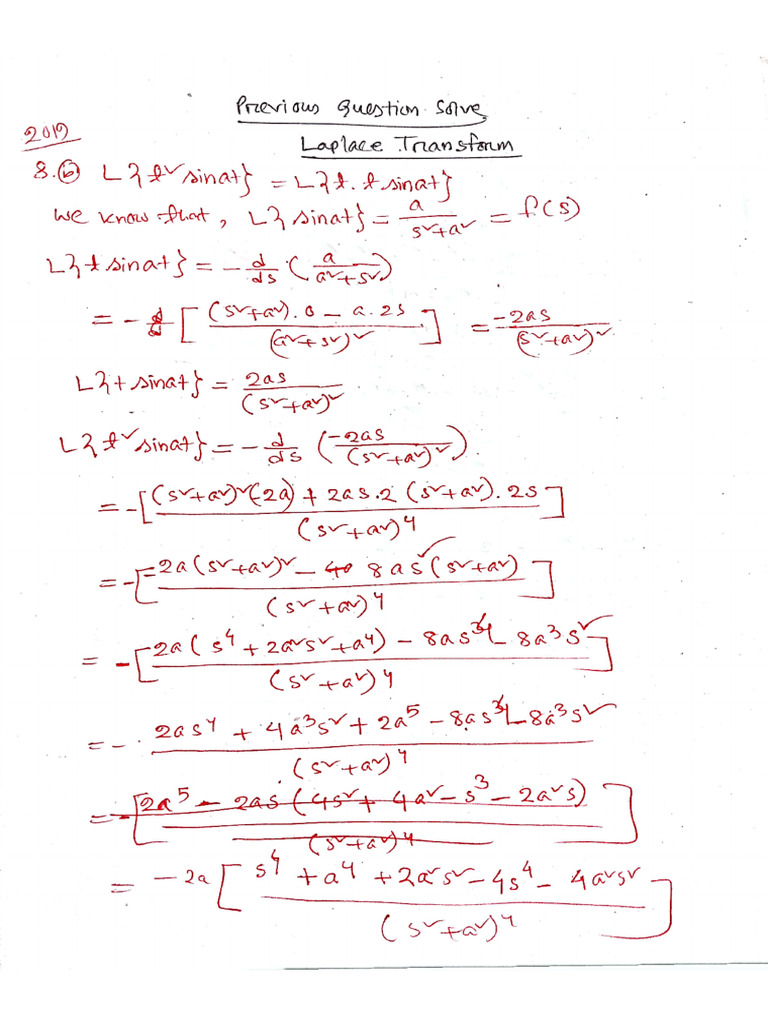 Previous Question Solve
Laplace Transform
2019
8.(b) L{t² sinat} = L{t. t sinat}
we know that, L{sinat} = a/(s²+a²) = f(s)
L{t sinat} = - d/ds (a/(a²+s²))
= - [((s²+a²).0 - a.2s)/(a²+s²)²] = -2as/(s²+a²)²
L{t sinat} = 2as/(s²+a²)²
L{t² sinat} = - d/ds (-2as/(s²+a²)²).
= -[((s²+a²)²(-2a) + 2as.2(s²+a²).2s)/(s²+a²)⁴]
= -[(-2a(s²+a²)² - 8as²(s²+a²))/(s²+a²)⁴]
= -[(2a(s⁴+2a²s²+a⁴) - 8as⁴ - 8a³s²)/(s²+a²)⁴]
= - (2as⁴ + 4a³s² + 2a⁵ - 8as⁴ - 8a³s²)/(s²+a²)⁴
= -[(2a⁵ - 2as(4s² + 4a² - s³ - 2a²s))/(s²+a²)⁴]
= -2a[(s⁴ + a⁴ + 2a²s² - 4s⁴ - 4a²s²)/(s²+a²)⁴]